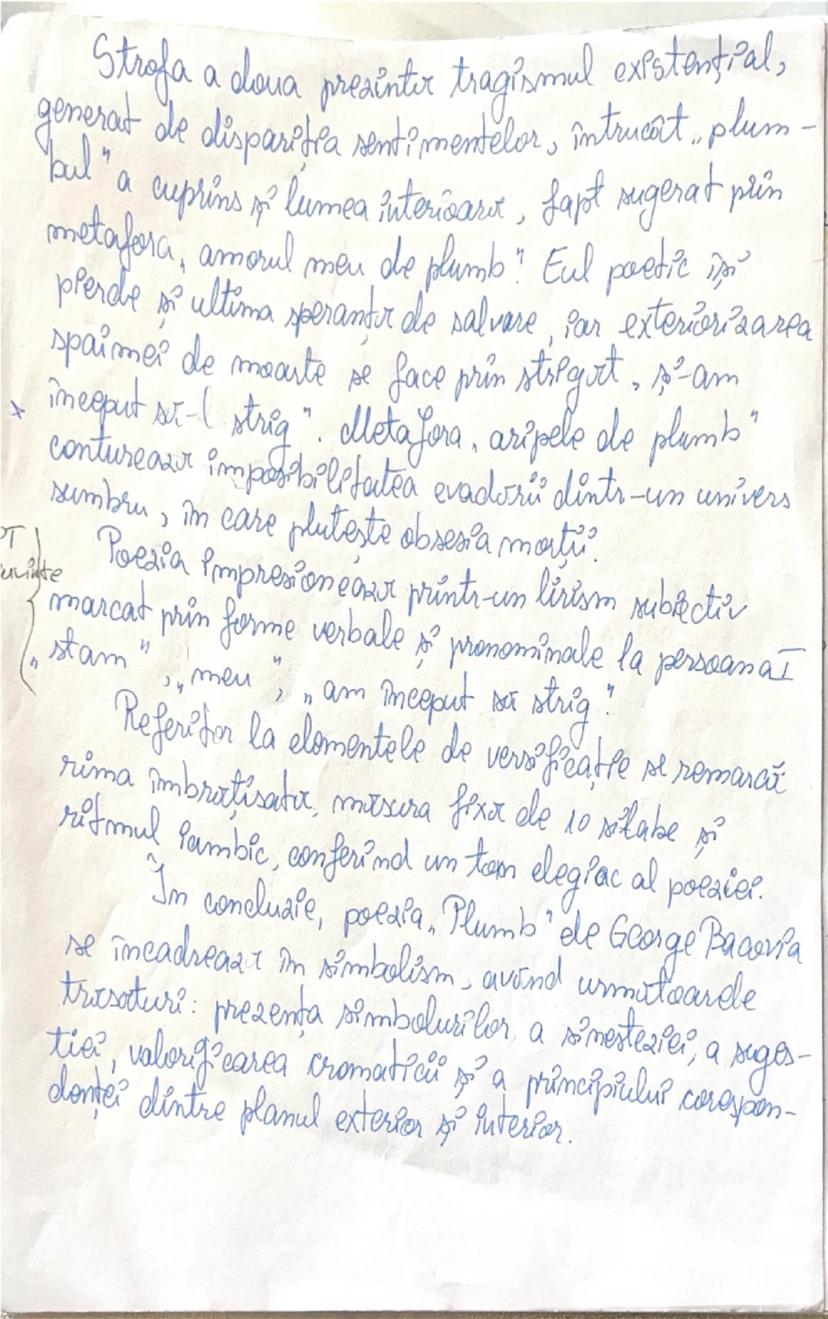 Strofa a doua prezintă tragismul existențial,
generat de dispariția sentimentelor, întrucât „plum-
bul" a cuprins și lumea interioară, fapt sugerat prin
metafora „amorul meu de plumb". Eul poetic își
pierde și ultima speranță de salvare, iar exteriorizarea
spaimei de moarte se face prin strigăt „și-am
* început să-l strig". Metafora „aripele de plumb"
conturează imposibilitatea evadării dintr-un univers
sumbru, în care plutește obsesia morții.
Poezia impresionează printr-un lirism subiectiv
marcat prin forme verbale și pronominale la persoana I
„stam", „meu", „am început să strig".
Referitor la elementele de versificație se remarcă
rima îmbrățișată, măsura fixă de 10 silabe și
ritmul iambic, conferind un ton elegiac al poeziei.
În concluzie, poezia „Plumb" de George Bacovia
se încadrează în simbolism, având următoarele
trăsături: prezența simbolurilor, a sinesteziei, a suges-
tiei, valorificarea cromaticii și a principiului corespon-
denței dintre planul exterior și interior.